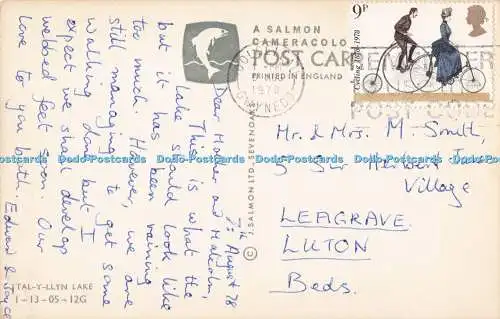 A SALMON
CAMERACOLO
POST CARD
PRINTED IN ENGLAND
J. SALMON LTD., SEVENOAKS
©
7th August 78
Dear Mother and Malcolm,
This is what the
lake should look like
but it has been raining
too much. However, we are
still managing to get some
walking done but I
expect we shall develop
webbed feet soon. Our
love to you both. Edwin & Joyce
TAL-Y-LLYN LAKE
1-13-05-12G
9P
Cycling 1878-1978
1978
GWYNEDD
POST CODE
Mr. & Mrs. M. Smith,
5
Village
LEAGRAVE
LUTON
Beds.
Dodo-Postcards Dodo-Postcards Dodo-Postcards Dodo-Postcards